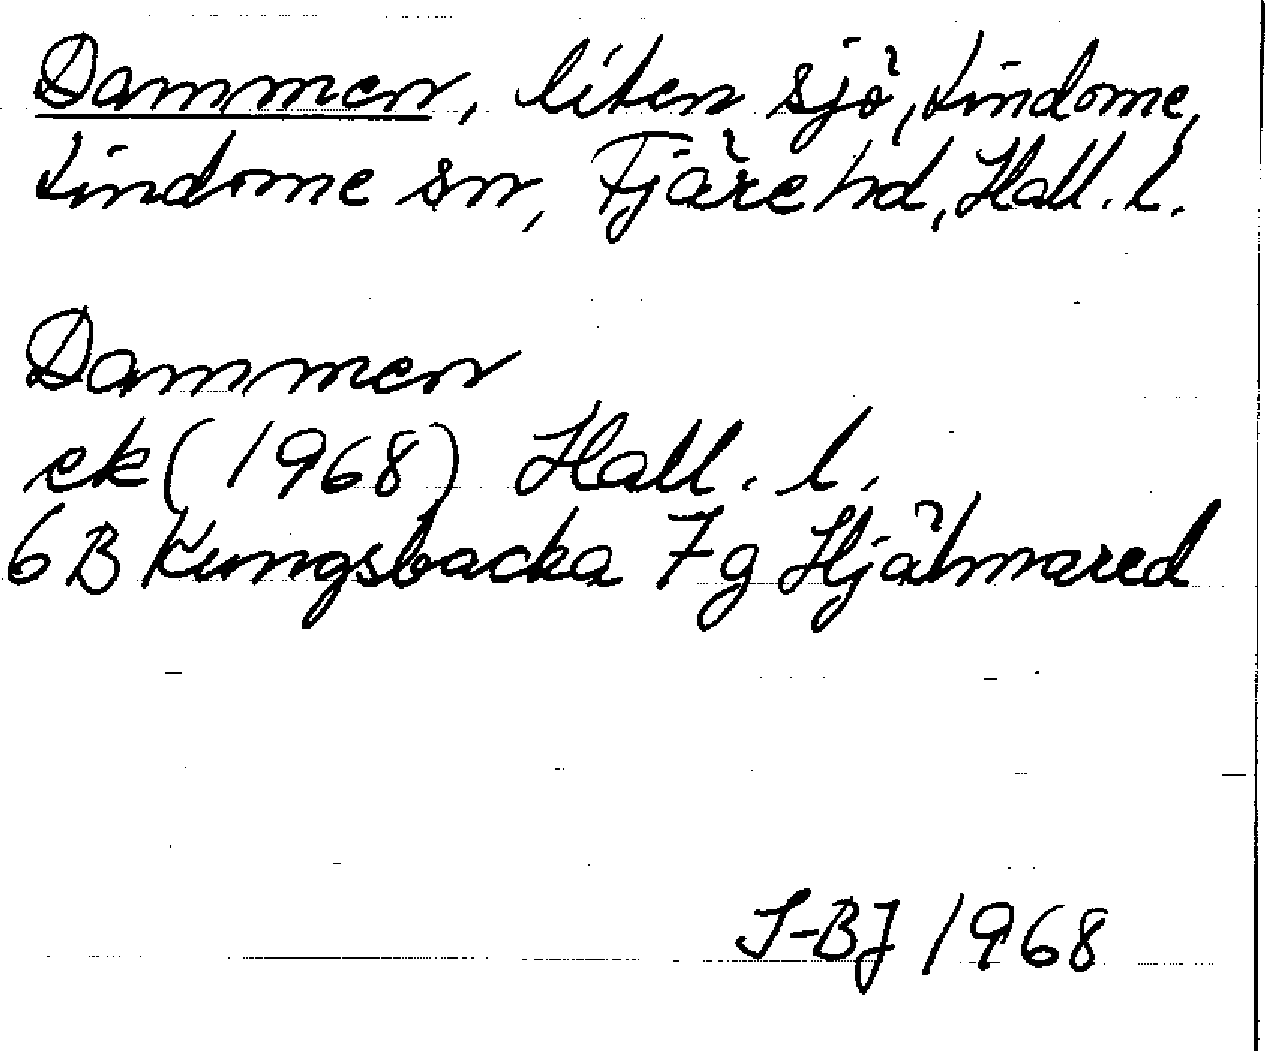 Dammen, liten sjö, Lindome,
Lindome sn, Fjäre hd, Hall. l.
Dammen
ek (1968) Hall. l.
6 B Kungsbacka 7 g Hjälmared
I-BJ 1968